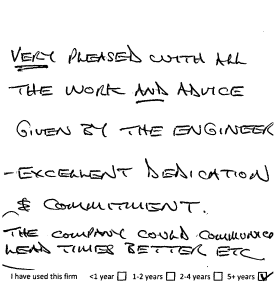 VERY PLEASED WITH ALL
THE WORK AND ADVICE
GIVEN BY THE ENGINEER
- EXCELLENT DEDICATION
& COMMITMENT.
THE COMPANY COULD COMMUNICA
LEAD TIMES BETTER ETC
I have used this firm <1 year ☐ 1-2 years ☐ 2-4 years ☐ 5+ years ☑